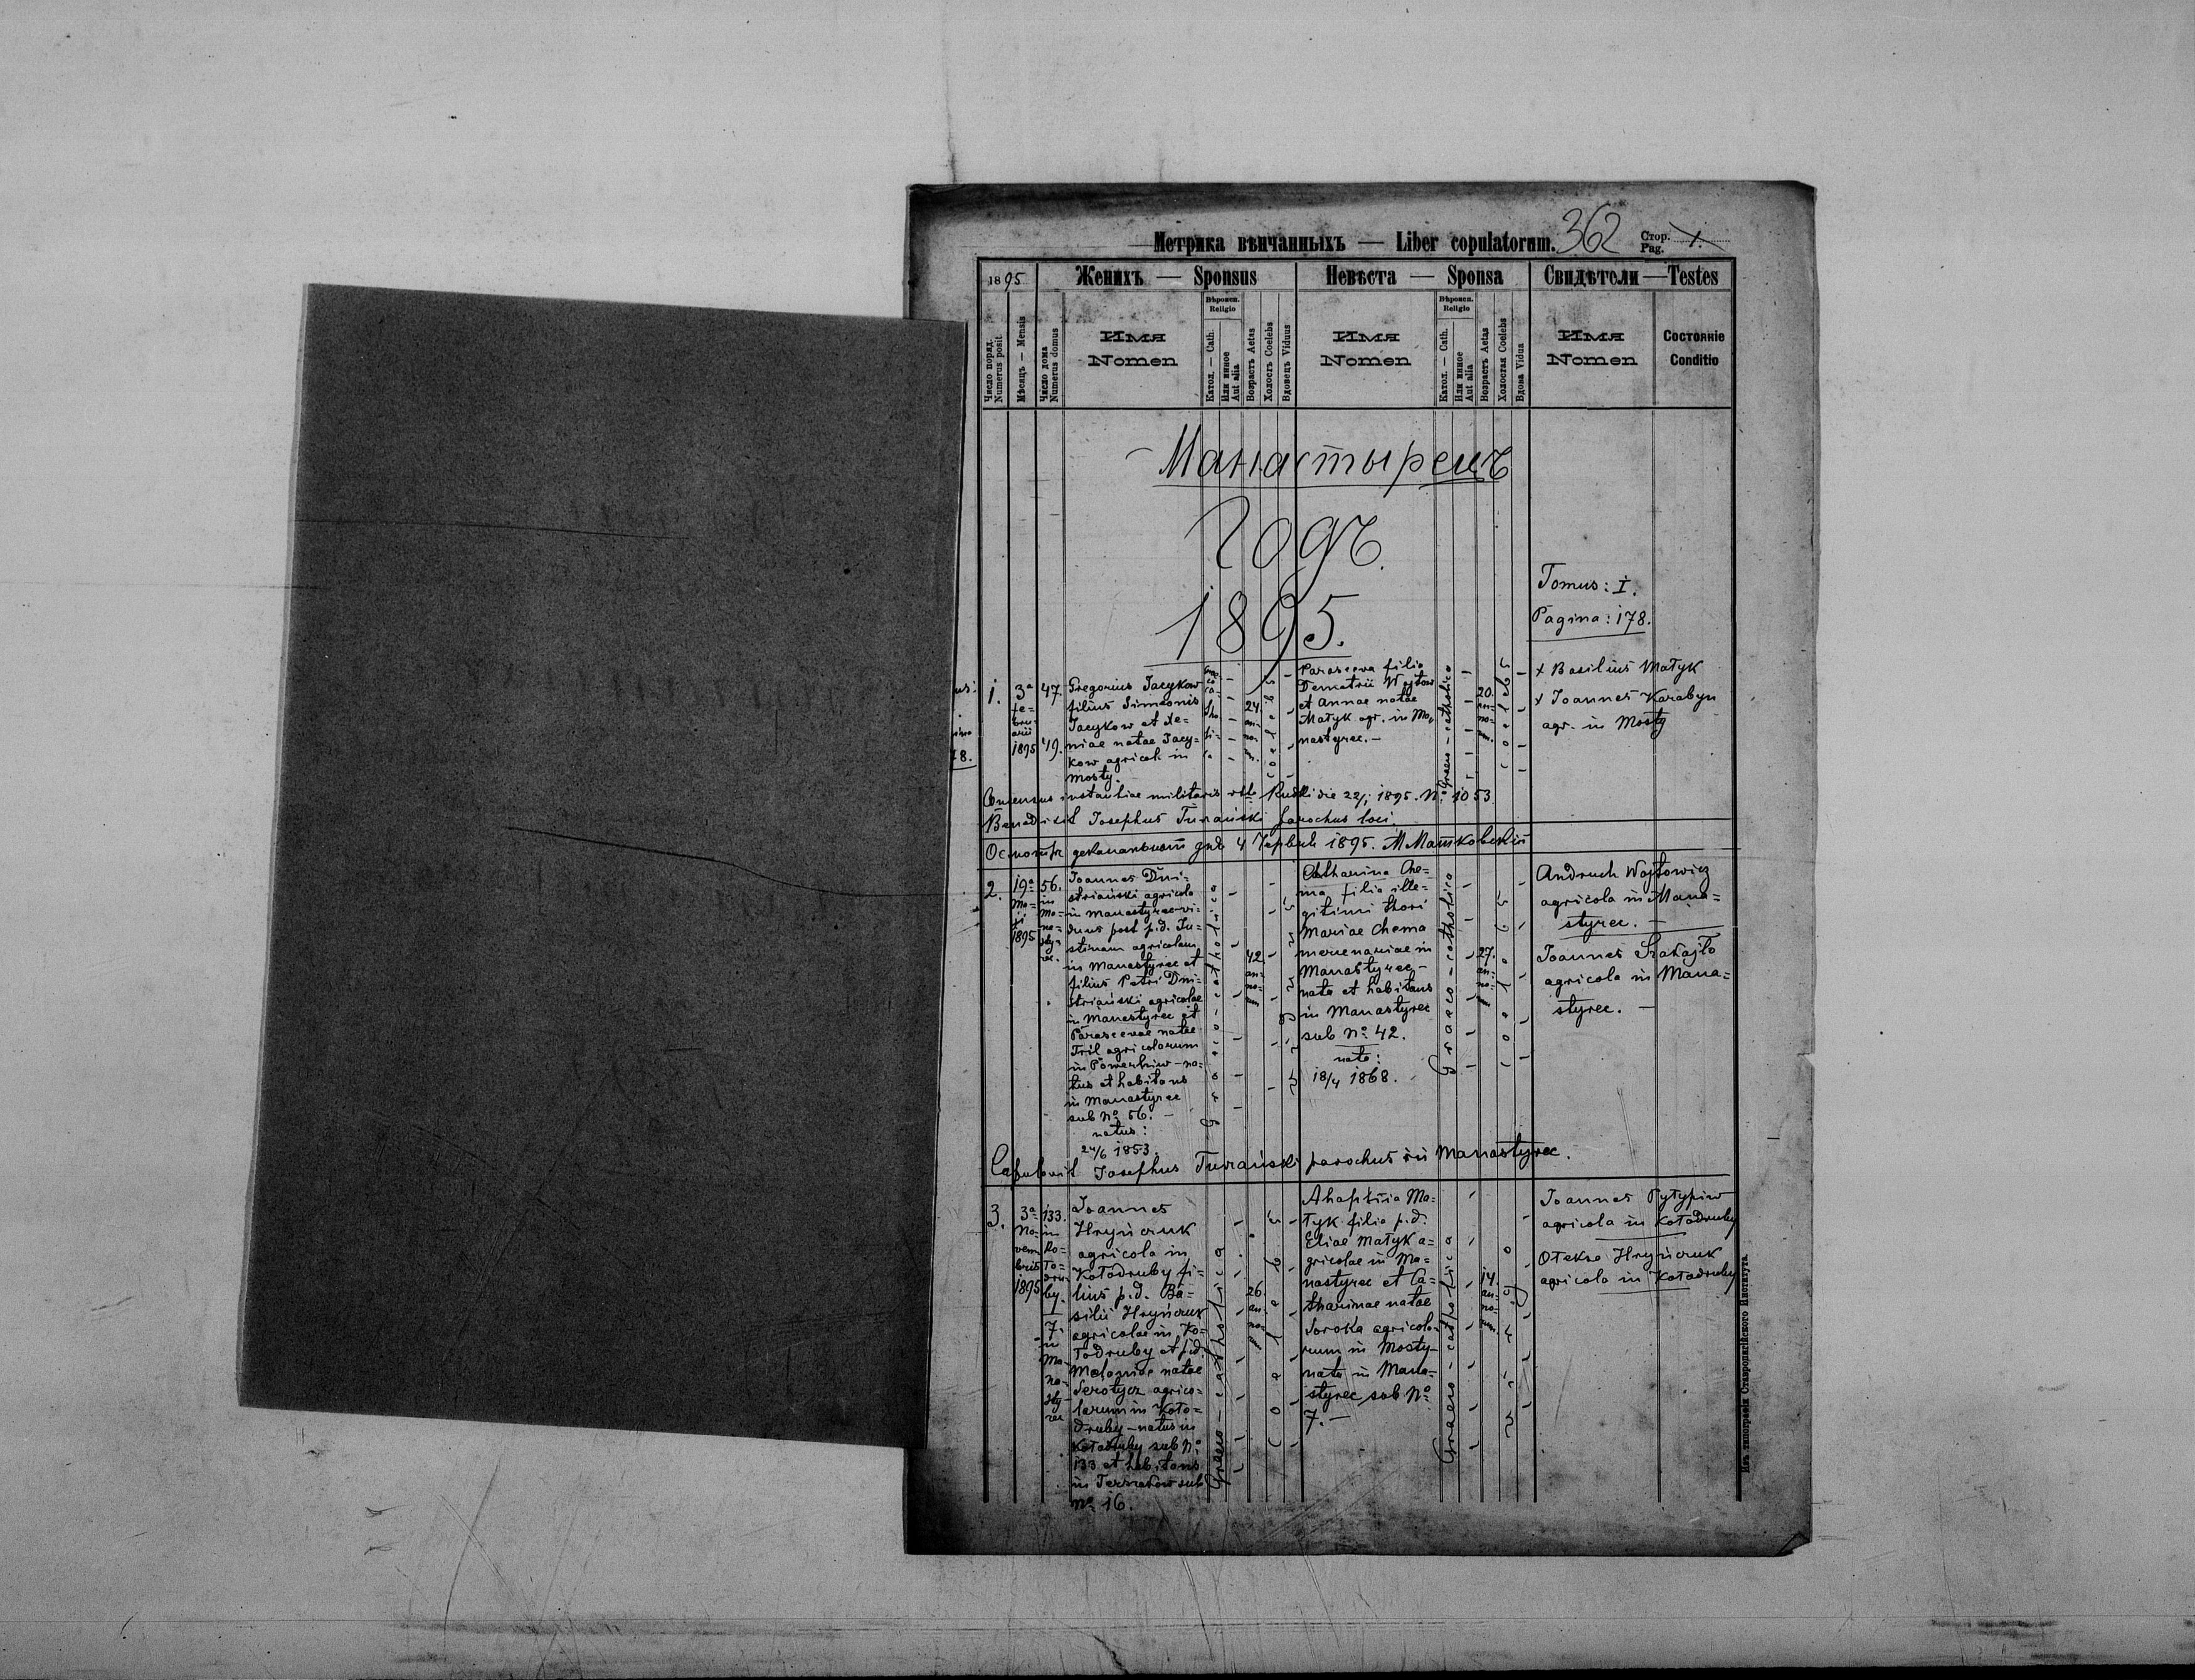 Метрика вѣнчанныхъ — Liber copulatorum. 362 Стор. Pag. 1.
1895 Женихъ — Sponsus Невѣста — Sponsa Свидѣтели — Testes
Число поряд. Numerus posit.
Мѣсяцъ — Mensis
Число дома Numerus domus
Имя
Nomen
Вѣроисп. Religio
Катол. — Cath.
Или инное Aut alia
Возрастъ Aetas
Холостъ Coelebs
Вдовецъ Viduus
Имя
Nomen
Вѣроисп. Religio
Катол. — Cath.
Или инное Aut alia
Возрастъ Aetas
Холостая Coelebs
Вдова Vidua
Имя
Nomen
Состояніе
Conditio
Манастырець
Годъ
1895.
Tomus: I.
Pagina: 178.
1.
3a
fe-
bru-
arii
1895
47.
49.
Gregorius Jacykow
filius Simeonis
Jacykow et Xe-
niae natae Jacy-
kow agricol. in
Mosty.
24.
an-
no-
rum
coelebs
Parasceva filia
Demetrii Wojtow
et Annae natae
Matyk agr. in Ma-
nastyrec.—
Graeco-catholica
20.
an-
no-
rum.
coelebs
+ Basilius Matyk
+ Joannes Karabyn
agr. in Mosty
Consensus instantiae militaris Rudki die 22/1 1895. No 1053
Benedixit Josephus Turański parochus loci.
4 Червня 1895. М Матковскій
2.
19a
Ma-
ji
1895
56.
in
Ma-
na-
sty-
rec.
Joannes Dni-
striański agricola
in Manastyrec vi-
duus post p.d. Ju-
stinam agricolam
in Manastyrec et
filius Petri Dni-
striański agricolae
in Manastyrec et
Parascevae natae
Tril agricolarum
in Powerchiw - na-
tus et habitans
in Manastyrec
sub No 56. —
natus:
24/6 1853.
Graeco-catholica
42.
an-
no-
rum
viduus
Catharina Che-
ma filia ille-
gitimi thori
Mariae Chema
mercenariae in
Manastyrec -
nata et habitans
in Manastyrec
sub No 42.
nata:
18/4 1868.
Graeco-catholica
27.
an-
no-
rum
coelebs
Andruch Wojtowicz
agricola in Mana=
styrec. —
Joannes Szakajło
agricola in Mana=
styrec. —
Copulavit Josephus Turański parochus in Manastyrec.
3.
3a
No-
vem
bris
1895
133.
in
Ko-
ło-
dru-
by.
7.
in
Ma-
na-
sty-
rec
Joannes
Hryńczuk
agricola in
Kołodruby fi-
lius p.d. Ba-
silii Hryńczuk
agricolae in Ko-
łodruby et p.d.
Melaniae natae
Serotycz agrico-
larum in Koło-
druby - natus in
Kołodruby sub No
133 et habitans
in Terszakow sub
No 16.
Graeco-catholica
26.
an-
no-
rum
coelebs
Ahaphia Ma=
tyk filia p.d.
Eliae Matyk a-
gricolae in Ma-
nastyrec et Ca-
tharinae natae
Soroka agricola-
rum in Mosty-
nata in Mana-
styrec sub No
7.—
Graeco-catholica
14.
an-
no-
rum.
virgo
Joannes Pytypiw
agricola in Kołodruby
Ołeksa Hryńczuk
agricola in Kołodruby
Изъ типографіи Ставропигійского Института.